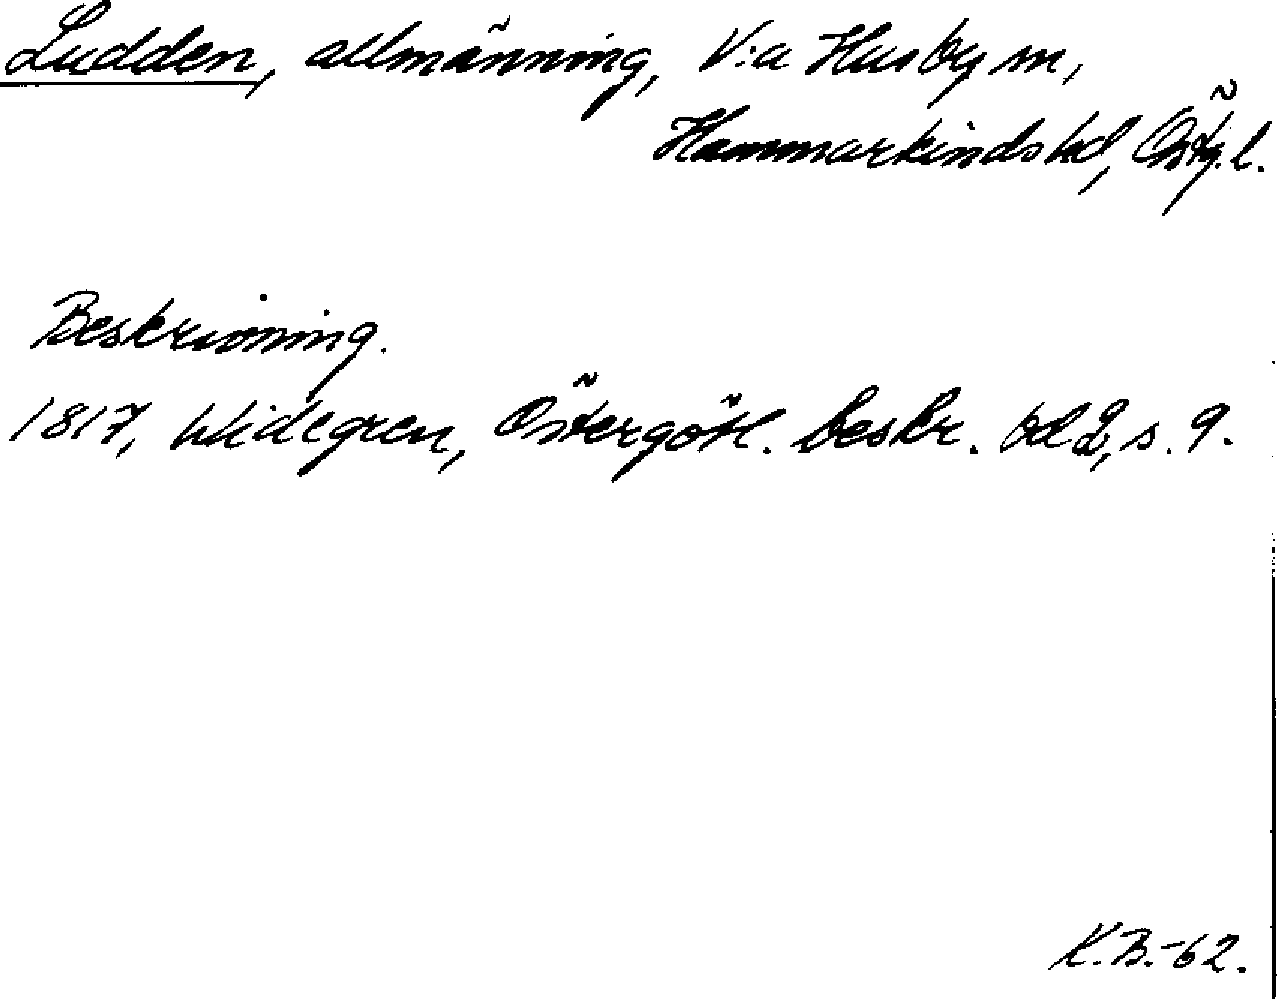 Ludden, allmänning, V:a Husby sn,
Hammarkinds hd, Östg. l.
Beskrivning.
1817, Widegren, Östergötl. beskr. bd 2, s. 9.
K.B.-62.